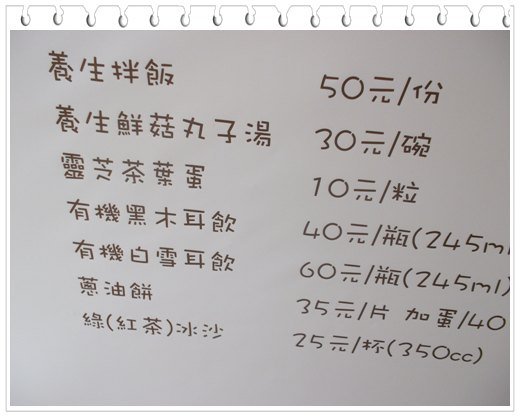 養生拌飯 50元/份
養生鮮菇丸子湯 30元/碗
靈芝茶葉蛋 10元/粒
有機黑木耳飲 40元/瓶(245ml
有機白雪耳飲 60元/瓶(245ml)
蔥油餅 35元/片 加蛋/40
綠(紅茶)冰沙 25元/杯(350cc)